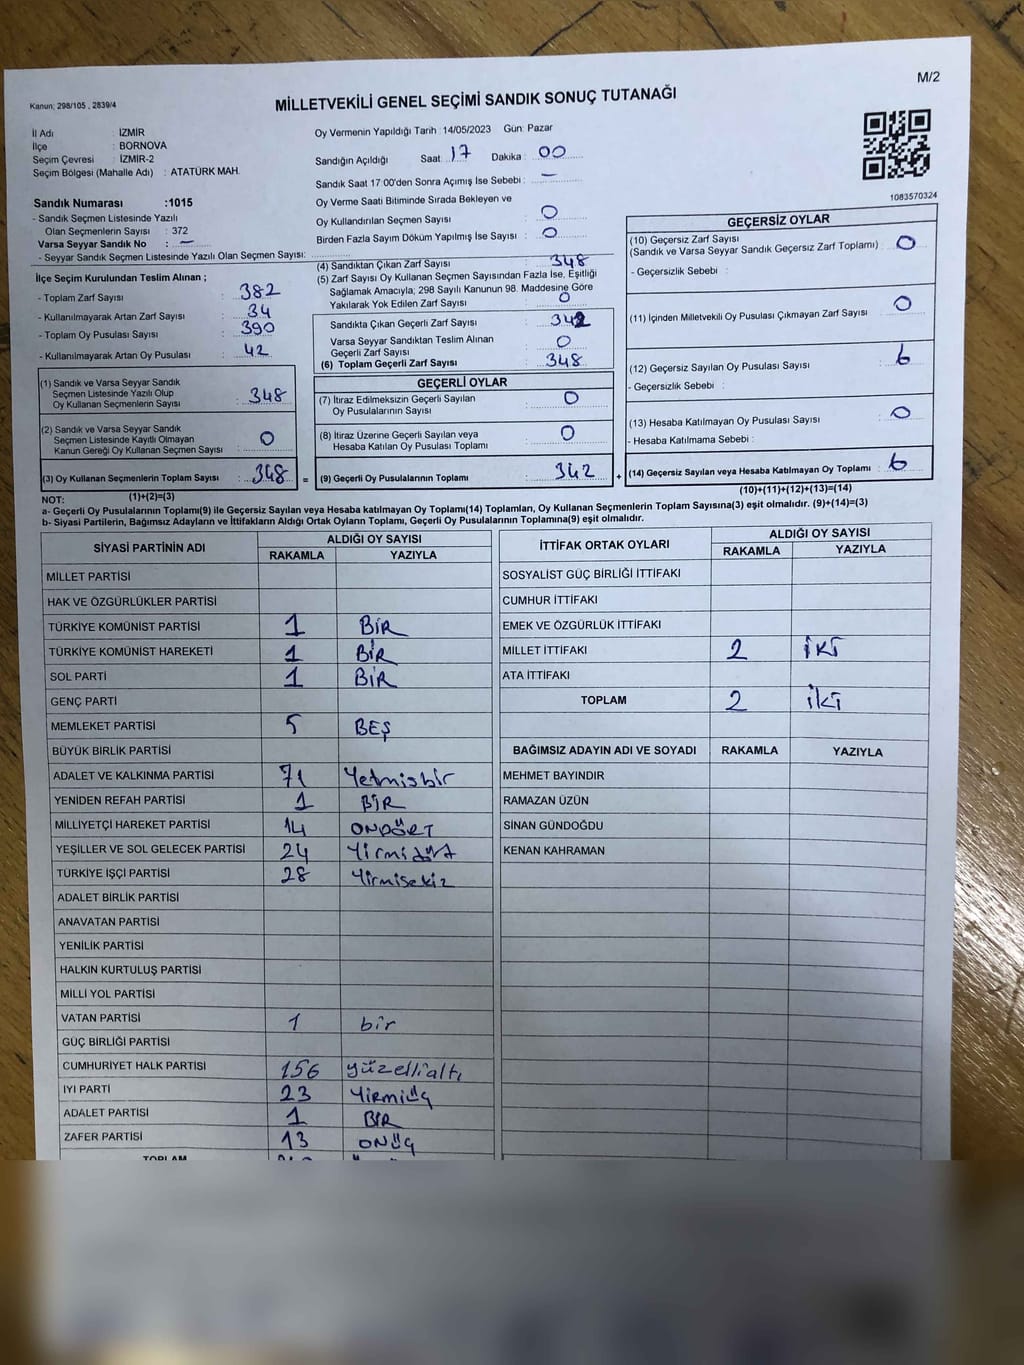 M/2
Kanun; 298/105 , 2839/4
MİLLETVEKİLİ GENEL SEÇİMİ SANDIK SONUÇ TUTANAĞI
İl Adı : İZMİR
İlçe : BORNOVA
Seçim Çevresi : İZMİR-2
Seçim Bölgesi (Mahalle Adı) : ATATÜRK MAH.
Sandık Numarası :1015
- Sandık Seçmen Listesinde Yazılı
Olan Seçmenlerin Sayısı : 372
Varsa Seyyar Sandık No : –
- Seyyar Sandık Seçmen Listesinde Yazılı Olan Seçmen Sayısı:
Oy Vermenin Yapıldığı Tarih :14/05/2023 Gün: Pazar
Sandığın Açıldığı Saat : 17 Dakika : 00
Sandık Saat 17 00'den Sonra Açımış İse Sebebi : –
Oy Verme Saati Bitiminde Sırada Bekleyen ve
Oy Kullandırılan Seçmen Sayısı : 0
Birden Fazla Sayım Döküm Yapılmış İse Sayısı : 0
1083570324
İlçe Seçim Kurulundan Teslim Alınan ;
- Toplam Zarf Sayısı : 382
- Kullanılmayarak Artan Zarf Sayısı : 34
- Toplam Oy Pusulası Sayısı : 390
- Kullanılmayarak Artan Oy Pusulası : 42
(1) Sandık ve Varsa Seyyar Sandık
Seçmen Listesinde Yazılı Olup
Oy Kullanan Seçmenlerin Sayısı : 348
(2) Sandık ve Varsa Seyyar Sandık
Seçmen Listesinde Kayıtlı Olmayan
Kanun Gereği Oy Kullanan Seçmen Sayısı : 0
(3) Oy Kullanan Seçmenlerin Toplam Sayısı : 348 =
(4) Sandıktan Çıkan Zarf Sayısı : 348
(5) Zarf Sayısı Oy Kullanan Seçmen Sayısından Fazla İse, Eşitliği
Sağlamak Amacıyla; 298 Sayılı Kanunun 98. Maddesine Göre
Yakılarak Yok Edilen Zarf Sayısı : 0
Sandıkta Çıkan Geçerli Zarf Sayısı : 342
Varsa Seyyar Sandıktan Teslim Alınan
Geçerli Zarf Sayısı : 0
(6) Toplam Geçerli Zarf Sayısı : 348
GEÇERLİ OYLAR
(7) İtiraz Edilmeksizin Geçerli Sayılan
Oy Pusulalarının Sayısı : 0
(8) İtiraz Üzerine Geçerli Sayılan veya
Hesaba Katılan Oy Pusulası Toplamı : 0
(9) Geçerli Oy Pusulalarının Toplamı : 342 +
GEÇERSİZ OYLAR
(10) Geçersiz Zarf Sayısı
(Sandık ve Varsa Seyyar Sandık Geçersiz Zarf Toplamı) : 0
- Geçersizlik Sebebi :
(11) İçinden Milletvekili Oy Pusulası Çıkmayan Zarf Sayısı : 0
(12) Geçersiz Sayılan Oy Pusulası Sayısı : 6
- Geçersizlik Sebebi :
(13) Hesaba Katılmayan Oy Pusulası Sayısı : 0
- Hesaba Katılmama Sebebi :
(14) Geçersiz Sayılan veya Hesaba Katılmayan Oy Toplamı : 6
NOT: (1)+(2)=(3) (10)+(11)+(12)+(13)=(14)
a- Geçerli Oy Pusulalarının Toplamı(9) ile Geçersiz Sayılan veya Hesaba katılmayan Oy Toplamı(14) Toplamları, Oy Kullanan Seçmenlerin Toplam Sayısına(3) eşit olmalıdır. (9)+(14)=(3)
b- Siyasi Partilerin, Bağımsız Adayların ve İttifakların Aldığı Ortak Oyların Toplamı, Geçerli Oy Pusulalarının Toplamına(9) eşit olmalıdır.
SİYASİ PARTİNİN ADI ALDIĞI OY SAYISI
RAKAMLA YAZIYLA
MİLLET PARTİSİ
HAK VE ÖZGÜRLÜKLER PARTİSİ
TÜRKİYE KOMÜNİST PARTİSİ 1 BİR
TÜRKİYE KOMÜNİST HAREKETİ 1 BİR
SOL PARTİ 1 BİR
GENÇ PARTİ
MEMLEKET PARTİSİ 5 BEŞ
BÜYÜK BİRLİK PARTİSİ
ADALET VE KALKINMA PARTİSİ 71 Yetmisbir
YENİDEN REFAH PARTİSİ 1 BİR
MİLLİYETÇİ HAREKET PARTİSİ 14 ONDÖRT
YEŞİLLER VE SOL GELECEK PARTİSİ 24 Yirmidört
TÜRKİYE İŞÇİ PARTİSİ 28 Yirmisekiz
ADALET BİRLİK PARTİSİ
ANAVATAN PARTİSİ
YENİLİK PARTİSİ
HALKIN KURTULUŞ PARTİSİ
MİLLİ YOL PARTİSİ
VATAN PARTİSİ 1 bir
GÜÇ BİRLİĞİ PARTİSİ
CUMHURİYET HALK PARTİSİ 156 yüzellialtı
İYİ PARTİ 23 Yirmiüç
ADALET PARTİSİ 1 BİR
ZAFER PARTİSİ 13 ONÜÇ
TOPLAM
İTTİFAK ORTAK OYLARI ALDIĞI OY SAYISI
RAKAMLA YAZIYLA
SOSYALİST GÜÇ BİRLİĞİ İTTİFAKI
CUMHUR İTTİFAKI
EMEK VE ÖZGÜRLÜK İTTİFAKI
MİLLET İTTİFAKI 2 İKİ
ATA İTTİFAKI
TOPLAM 2 İKİ
BAĞIMSIZ ADAYIN ADI VE SOYADI RAKAMLA YAZIYLA
MEHMET BAYINDIR
RAMAZAN ÜZÜN
SİNAN GÜNDOĞDU
KENAN KAHRAMAN